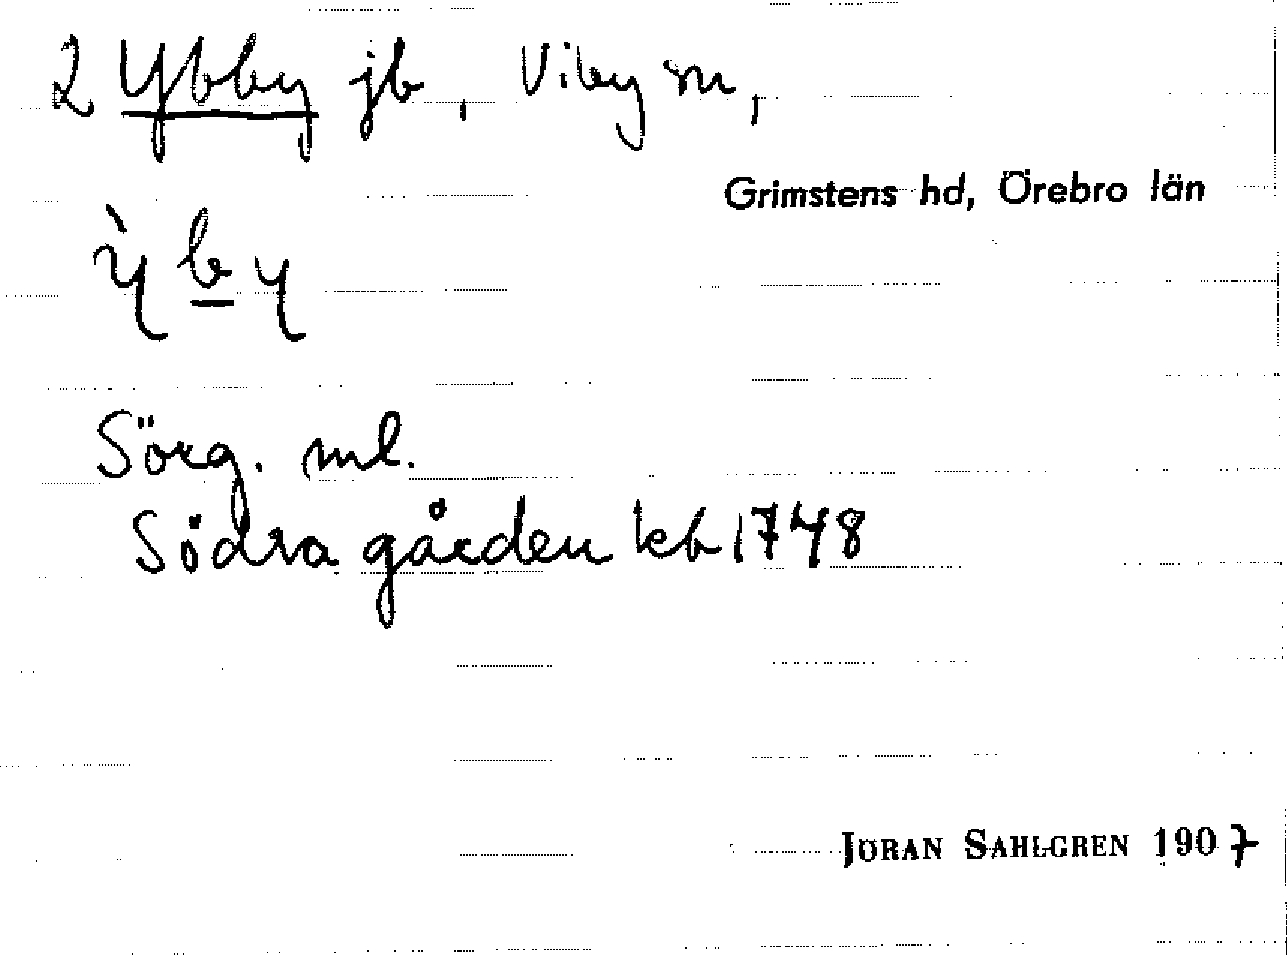 2 Ybby jb, Viby sn,
Grimstens hd, Örebro län
ỳ b y
Sörg. ml.
Södra gården kb 1748
JÖRAN SAHLGREN 1907